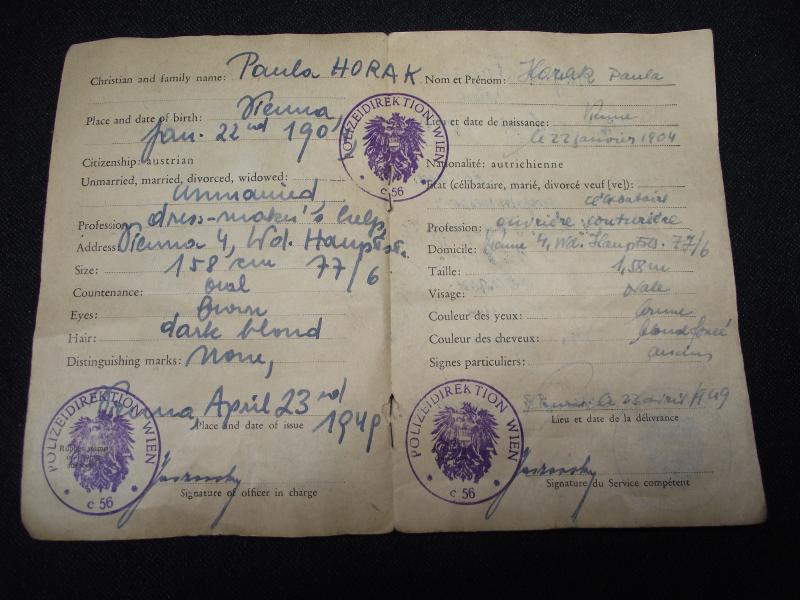 Christian and family name: Paula HORAK
Place and date of birth: Vienna
Jan. 22nd 190
Citizenship: austrian
Unmarried, married, divorced, widowed:
unmarried
Profession: dress-maker's help,
Address: Vienna 4, Wd. Hauptstr.
Size: 158 cm 77/6
Countenance: oval
Eyes: brown
Hair: dark blond
Distinguishing marks: None,
Vienna, April 23rd
1949
Place and date of issue
Signature of officer in charge
POLIZEIDIREKTION WIEN
c 56
POLIZEIDIREKTION WIEN
c 56
Nom et Prénom: Horak Paula
Lieu et date de naissance: Vienne
le 22 janvier 1904
Nationalité: autrichienne
Etat (célibataire, marié, divorcé veuf [ve]):
célibataire
Profession: ouvrière couturière
Domicile: Vienne 4, Wd. Hauptstr. 77/6
Taille: 1,58m
Visage: ovale
Couleur des yeux: brune
Couleur des cheveux: blond foncé
Signes particuliers: aucun
Lieu et date de la délivrance
Signature du Service compétent
POLIZEIDIREKTION WIEN
c 56